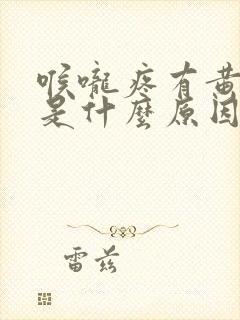 喉嚨疼有黃
是什麼原因
雷茲